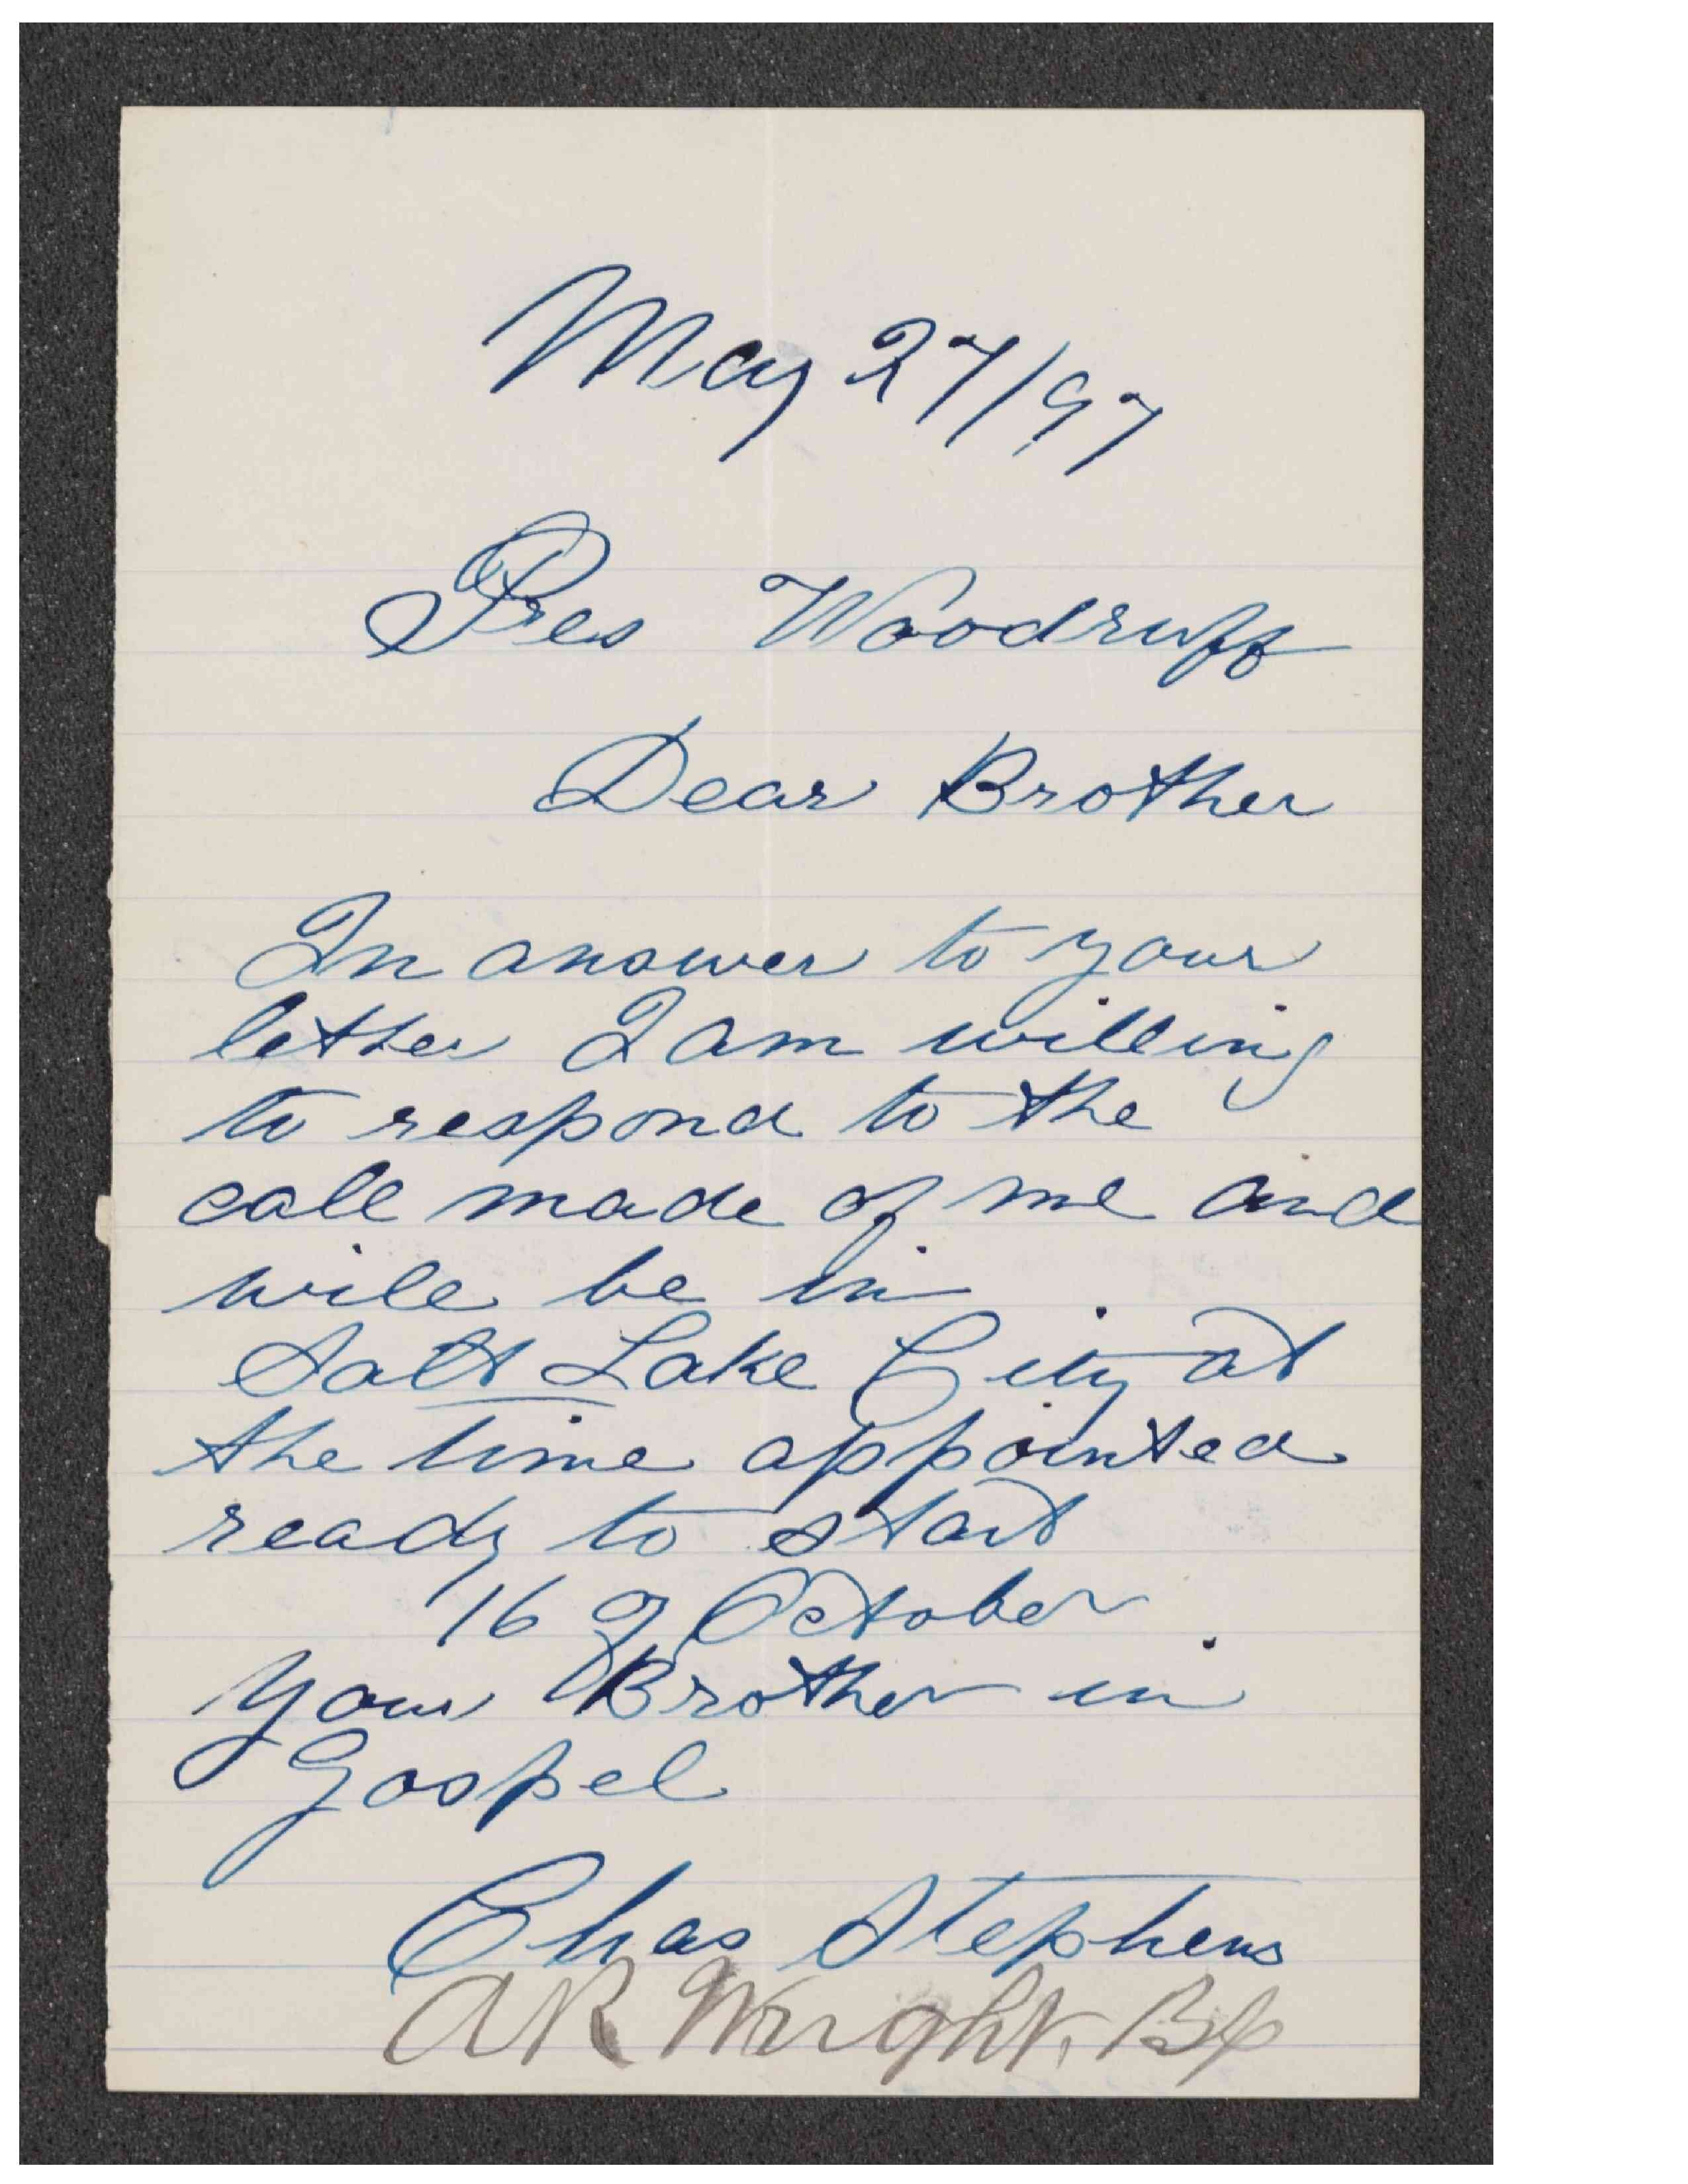 May 27/97
Pres Woodruff
Dear Brother
In answer to your
letter I am willing
to respond to the
call made of me and
will be in
Salt Lake City at
the time appointed
ready to start
16 of October
Your Brother in
Gospel
Chas Stephens
A R Wright, Bp